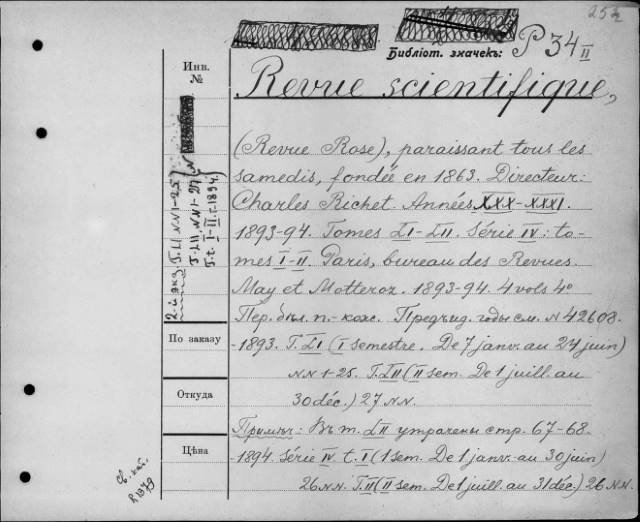 25
Библіот. значекъ: P 34 II
Revue scientifique,
Инв. №
(Revue Rose), paraissant tous les
samedis, fondée en 1863. Directeur:
Charles Richet. Années XXX-XXXI.
1893-94. Tomes LI-LII. Série IV: to-
mes I-II. Paris, bureau des Revues.
May et Motteroz. 1893-94. 4 vols 4º
Пер. бѣл. п.-кож. Предъид. годы см. N 42608.
2-й экз. T. LI. NN 1-25
T. LII. NN 1-27.
T. t. I-II. 1894.
По заказу
-1893. T. LI (I semestre. De 7 janv. au 24 juin)
NN 1-25. T. LII (II sem. De 1 juill. au
Откуда
30 déc.) 27 NN.
Примѣч: Въ т. LII утрачены стр. 67-68.
Цѣна
-1894. Série IV t. I (1 sem. De 1 janv. au 30 juin)
26 NN. T. II (II sem. De 1 juill. au 31 déc.) 26 NN.
Св. кат.